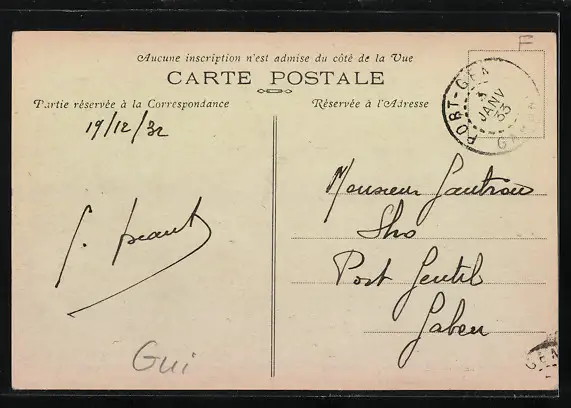 F
Aucune inscription n'est admise du côté de la Vue
CARTE POSTALE
Partie réservée à la Correspondance
Réservée à l'Adresse
PORT-GEN
3
JANV
33
GABON
19/12/32
Monsieur Gautron
Sho
Port Gentil
Gabon
Gui